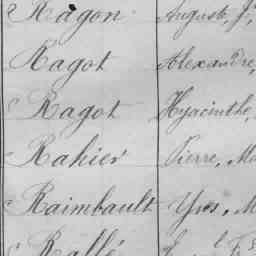 Ragon Auguste, J,
Ragot Alexandre,
Ragot Hyacinthe,
Rahier Pierre, Ma
Raimbault Yves, M
Rallé